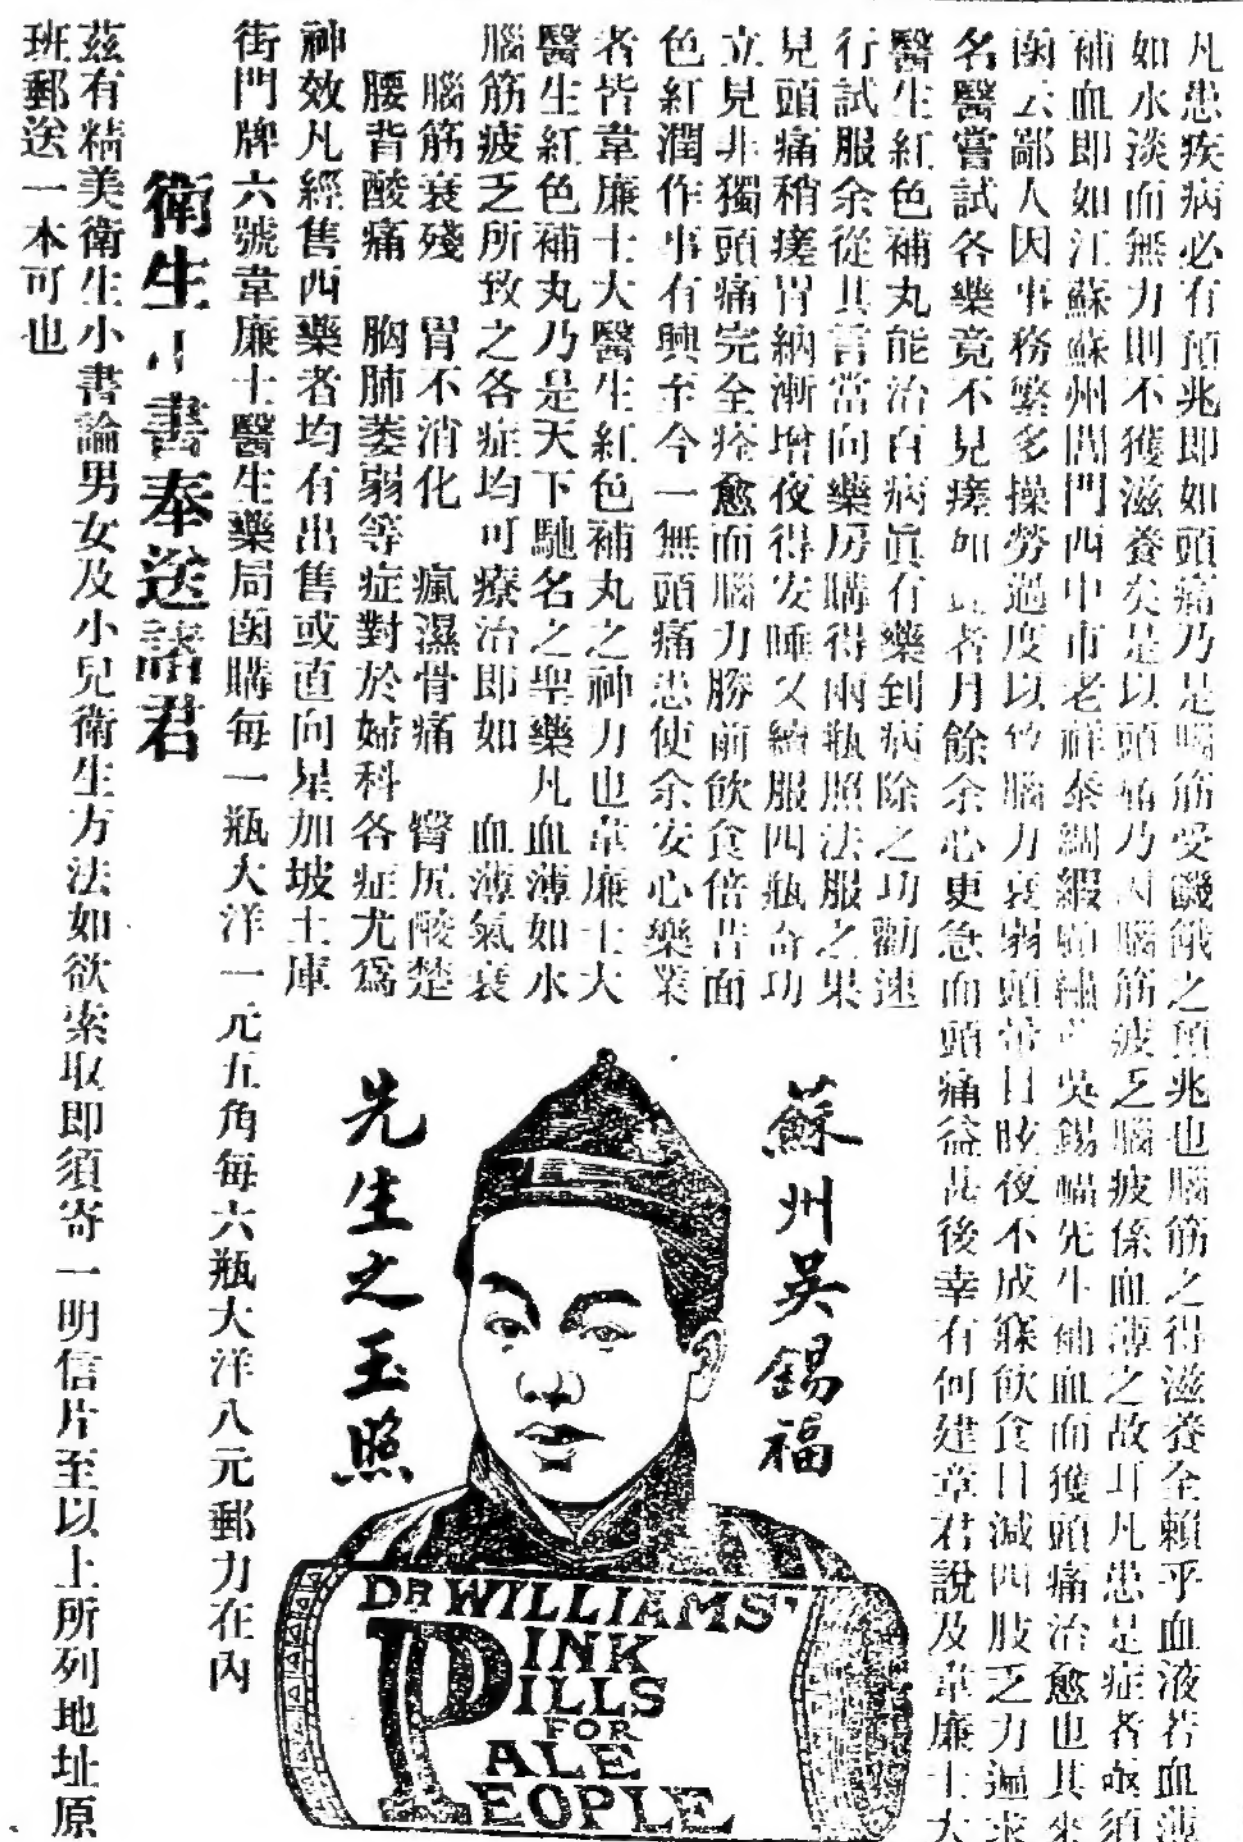 凡患疾病必有預兆即如頭痛乃是腦筋受饑餓之預兆也腦筋之得滋養全賴乎血液若血薄
如水淡而無力則不獲滋養矣是以頭痛乃因腦筋疲乏腦疲係血薄之故耳凡患是症者亟須
補血即如江蘇蘇州閶門西中市老祥泰綢緞顧繡 吳錫福先生補血而獲頭痛治愈也其來
函云鄙人因事務繁多操勞過度以致腦力衰弱頭常目眩夜不成寐飲食日減四肢乏力遍求
名醫嘗試各藥竟不見瘥如 者月餘余心更急而頭痛益甚後幸有何建章君說及韋廉士大
醫生紅色補丸能治百病眞有藥到病除之功勸速
行試服余從其言當向藥房購得兩瓶照法服之果
見頭痛稍瘥胃納漸增夜得安睡又續服四瓶奇功
立見非獨頭痛完全痊愈而腦力勝前飲食倍昔面
色紅潤作事有興至今一無頭痛患使余安心樂業
者皆韋廉士大醫生紅色補丸之神力也韋廉士大
醫生紅色補丸乃是天下馳名之聖藥凡血薄如水
腦筋疲乏所致之各症均可療治即如 血薄氣衰
腦筋衰殘 胃不消化 瘋濕骨痛 臀尻酸楚
腰背酸痛 胸肺萎弱等症對於婦科各症尤爲
神效凡經售西藥者均有出售或直向星加坡土庫
街門牌六號韋廉士醫生藥局函購每一瓶大洋一元五角每六瓶大洋八元郵力在內
衛生小書奉送諸君
茲有精美衛生小書論男女及小兒衛生方法如欲索取即須寄一明信片至以上所列地址原
班郵送一本可也
蘇州吳錫福
先生之玉照
DR WILLIAMS'
PINK
PILLS
FOR
PALE
PEOPLE